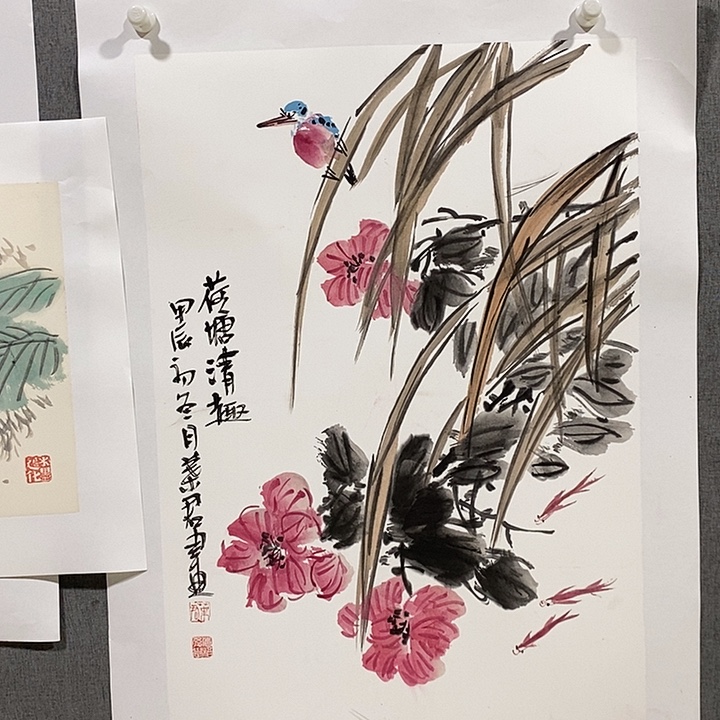 荷塘清趣
甲辰初冬月葉君画